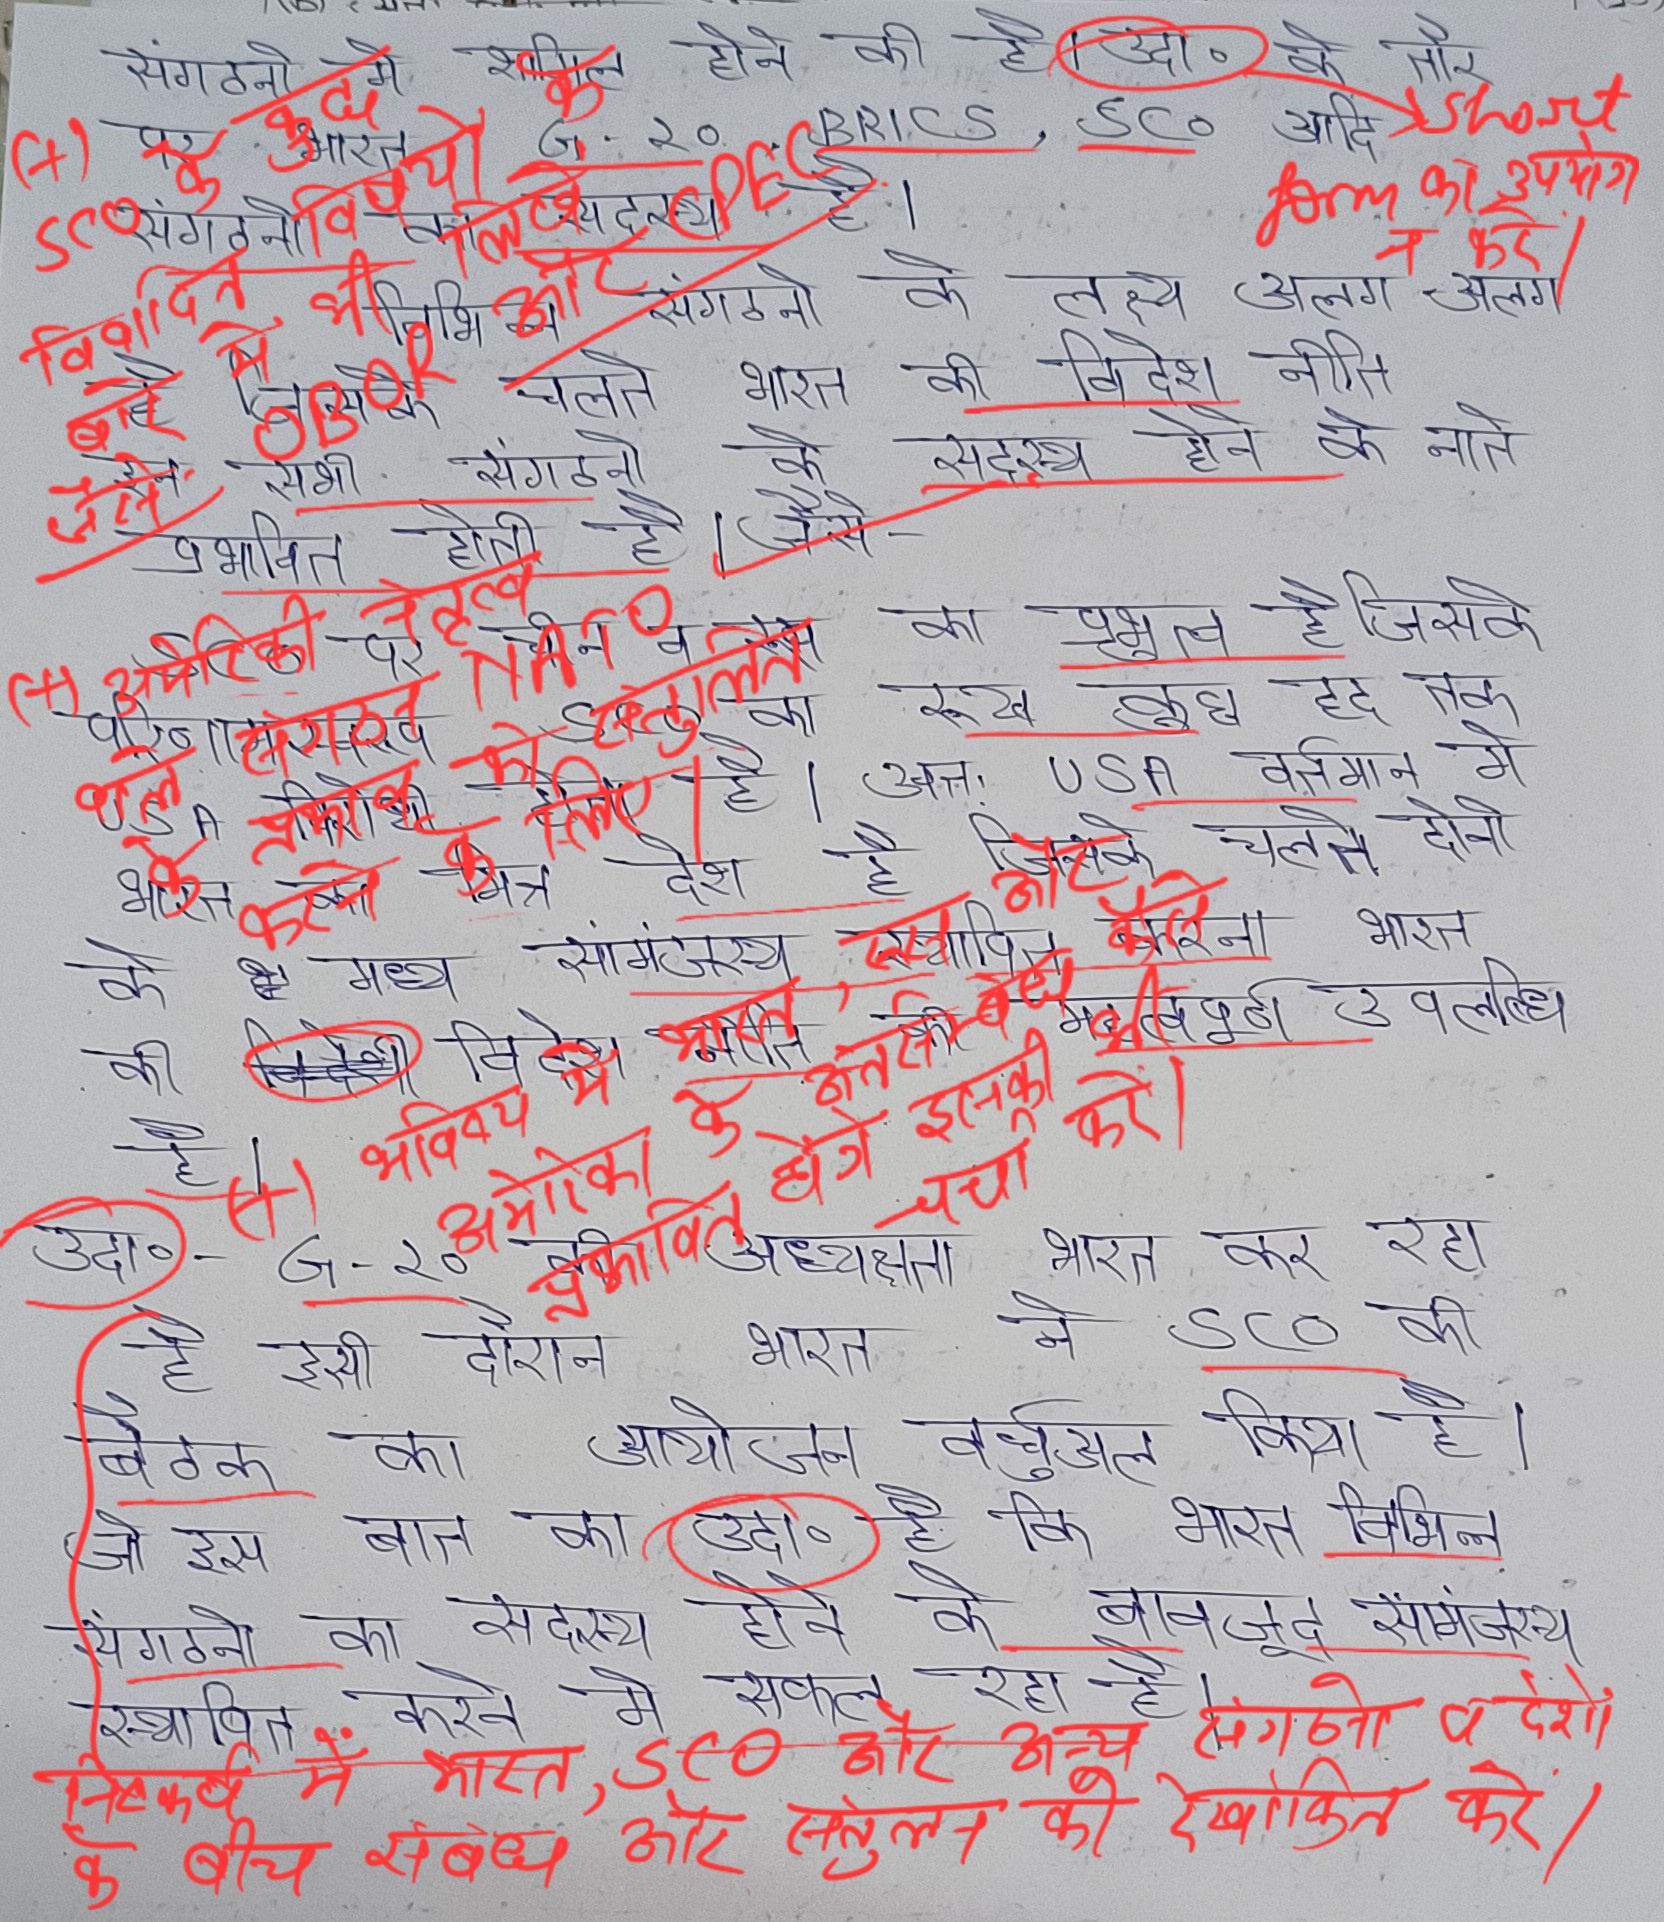 संगठनो मे शामिल होने की है। उदा॰ के तौर
पर भारत G-२० BRICS, SCO आदि
संगठनो का सदस्य है।
विभिन्न संगठनो के लक्ष्य अलग अलग
है जिसके चलते भारत की विदेश नीति
इन सभी संगठनो के सदस्य होने के नाते
प्रभावित होती है। जैसे-
पर चीन व रूस का प्रभुत्व है जिसके
परिणामस्वरूप SCO का रूख कुछ हद तक
USA विरोधी होता है। अतः USA वर्तमान मे
भारत का मित्र देश है जिसके चलते दोनो
के मध्य सांमंजस्य स्थापित करना भारत
की विदेशी विदेश नीति की महत्वपूर्ण उपलब्धि
है।
उदा॰- G-२० की अध्यक्षता भारत कर रहा
है इसी दौरान भारत ने SCO की
बैठक का आयोजन वर्चुअल किया है।
जो इस बात का उदा॰ है कि भारत विभिन्न
संगठनो का सदस्य होने के बावजूद सांमंजस्य
स्थापित करने मे सफल रहा है।
Short
form का उपयोग
न करें।
(+) SCO के कुछ विषयों के
विवादित विषयों के लिए
बारे में भी
जैसे OBOR और CPEC
(+) अमेरिकी नेतृत्व
वाले संगठन NATO
के प्रभाव को संतुलित
करने के लिए।
(+) भविष्य में भारत, रूस और चीन
अमेरिका के अंतर्संबंध कैसे
प्रभावित होंगे इसकी भी
चर्चा करें।
निष्कर्ष में भारत, SCO और अन्य संगठनो व देशों
के बीच संबंध और संतुलन को रेखांकित करें।